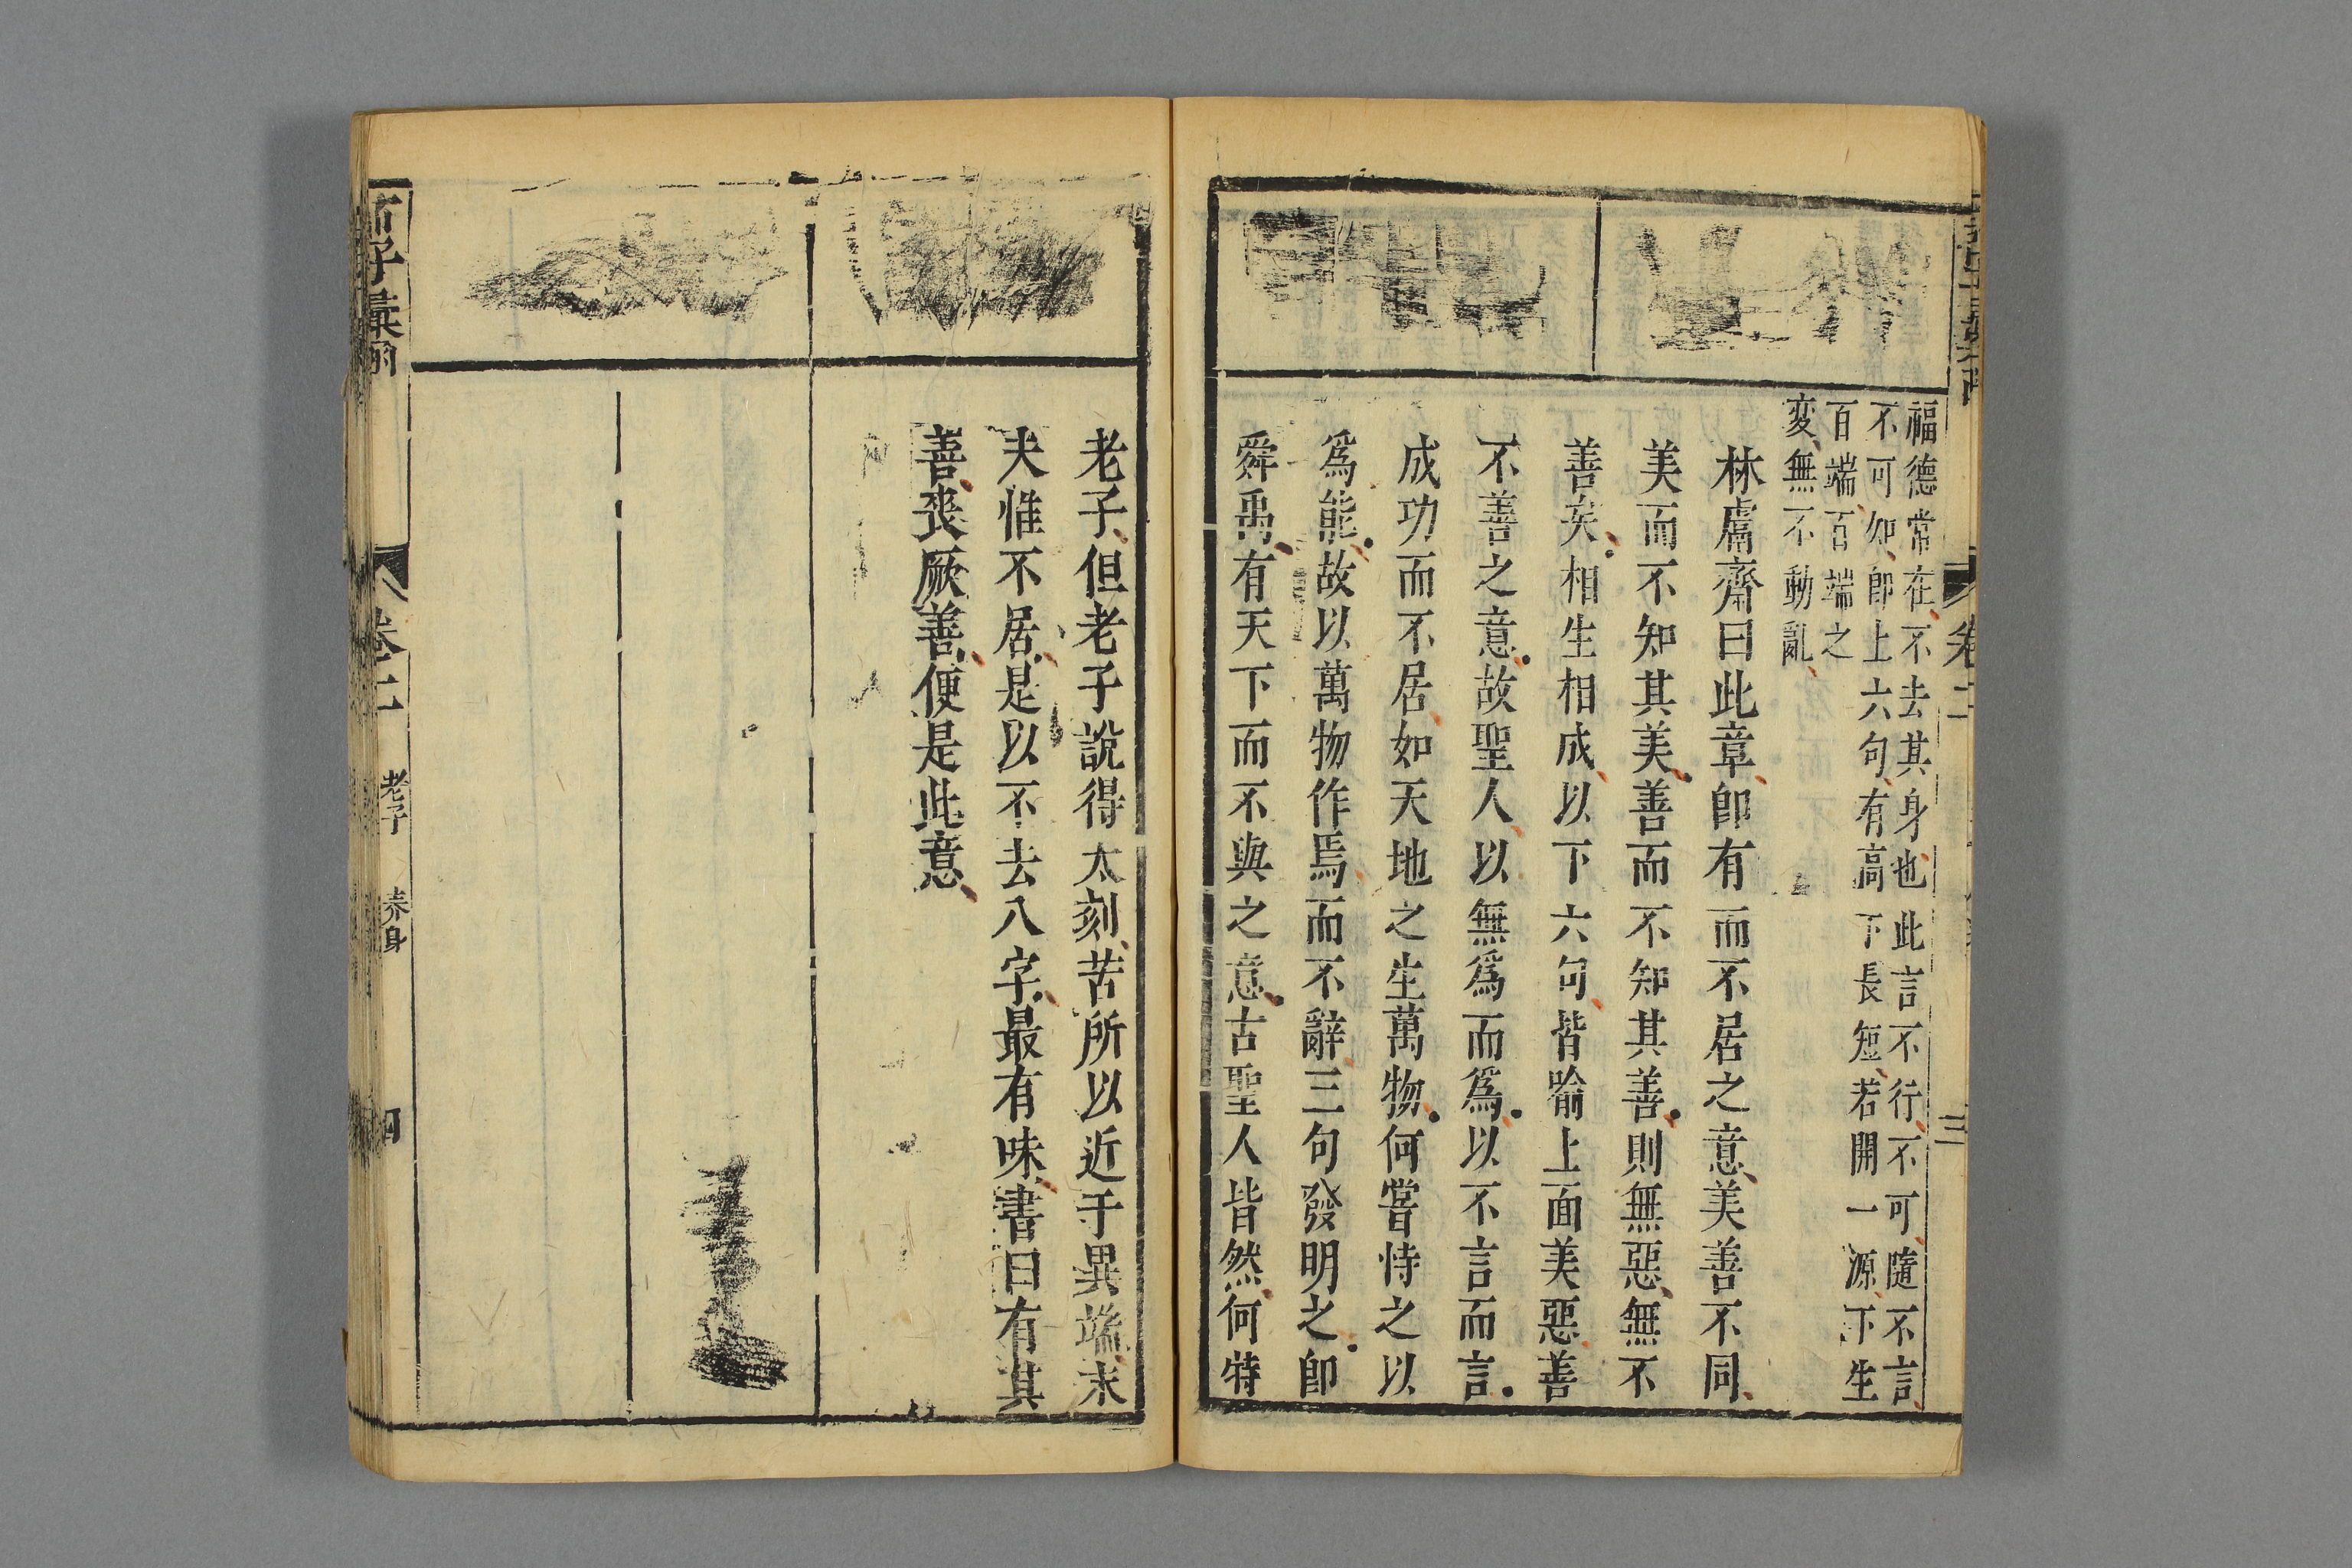 福德常在不去其身也此言不行不可隨不言
不可知卽上六句有高下長短若開一源下生
百端百端之
変無不動亂
林鬳齋曰此章卽有而不居之意美善不同
美而不知其美善而不知其善則無惡無不
善矣相生相成以下六句皆喻上面美惡善
不善之意故聖人以無爲而爲以不言而言
成功而不居如天地之生萬物何嘗恃之以
爲能故以萬物作焉而不辭三句發明之卽
舜禹有天下而不與之意古聖人皆然何特
卷二
三
老子但老子說得太刻苦所以近于異端末
夫惟不居是以不去八字最有味書曰有其
善喪厥善便是此意
卷二
老子
養身
四